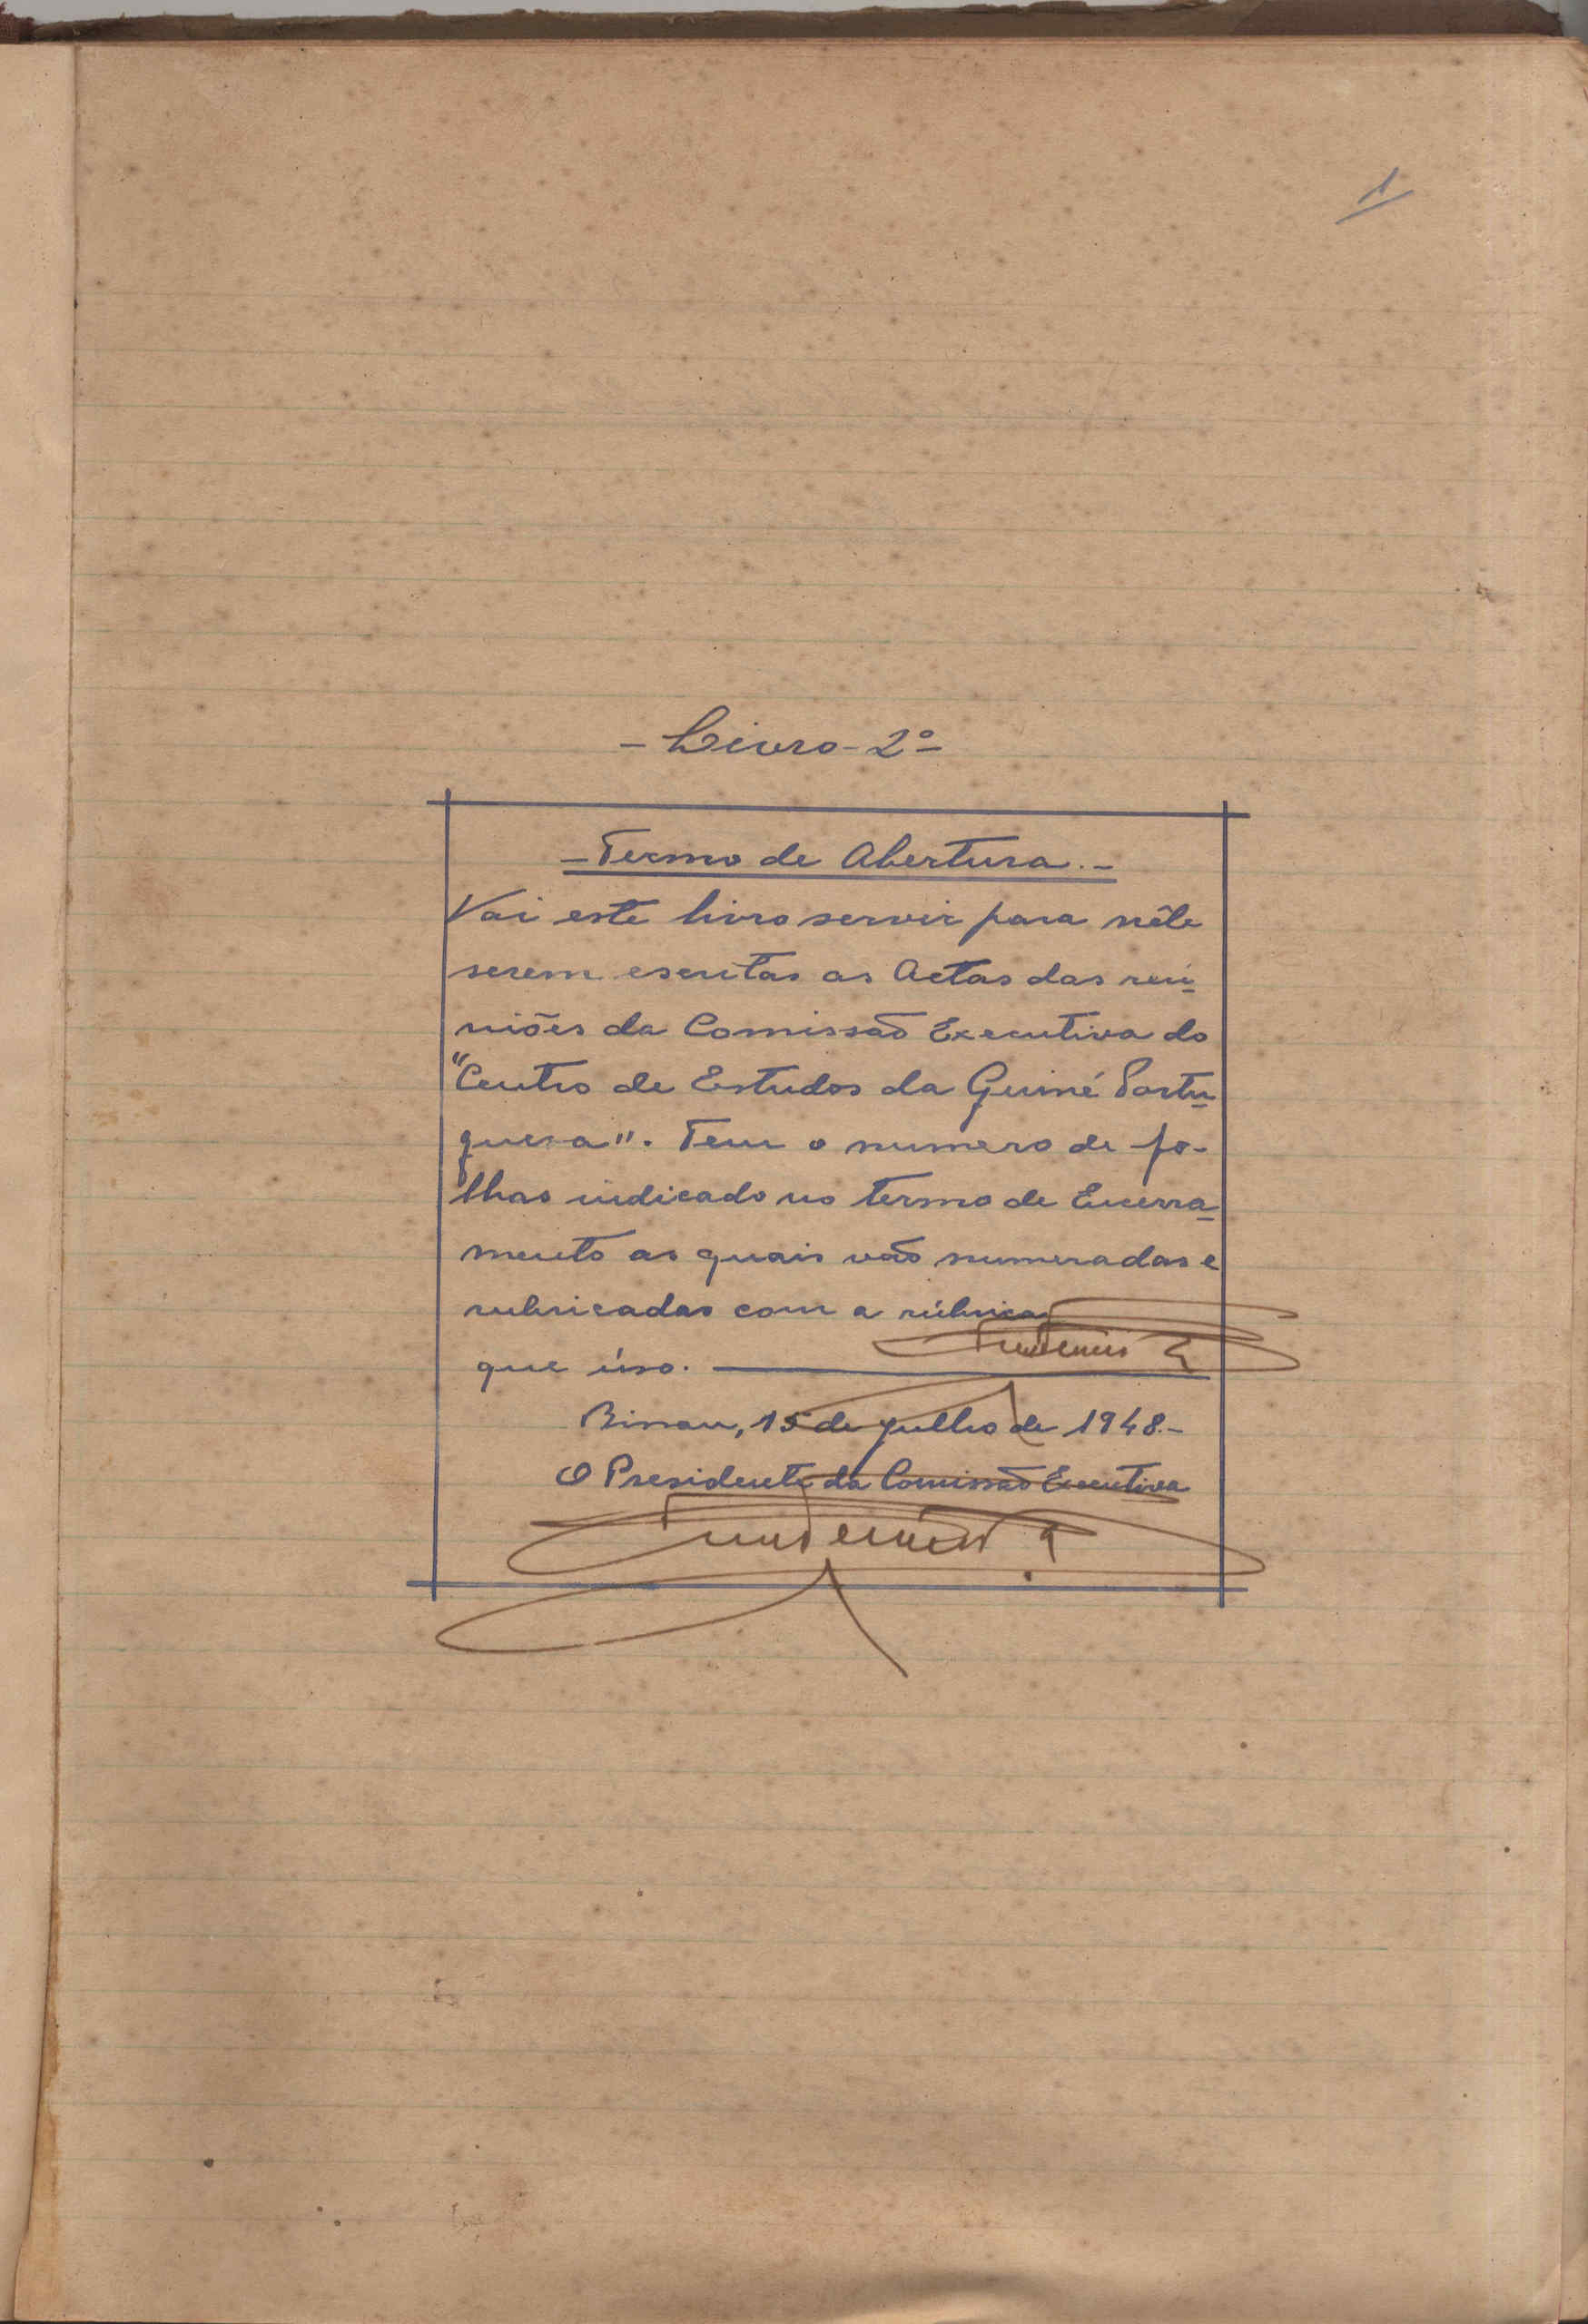 1
- Livro - 2º -
- Termo de Abertura. -
Vai este livro servir para nêle
serem escritas as Actas das reu-
niões da Comissão Executiva do
"Centro de Estudos da Guiné Portu-
guesa". Tem o numero de fo-
lhas indicado no termo de Encerra-
mento as quais vão numeradas e
rubricadas com a rúbrica
que úso.
Bissau, 15 de julho de 1948. -
O Presidente da Comissão Executiva